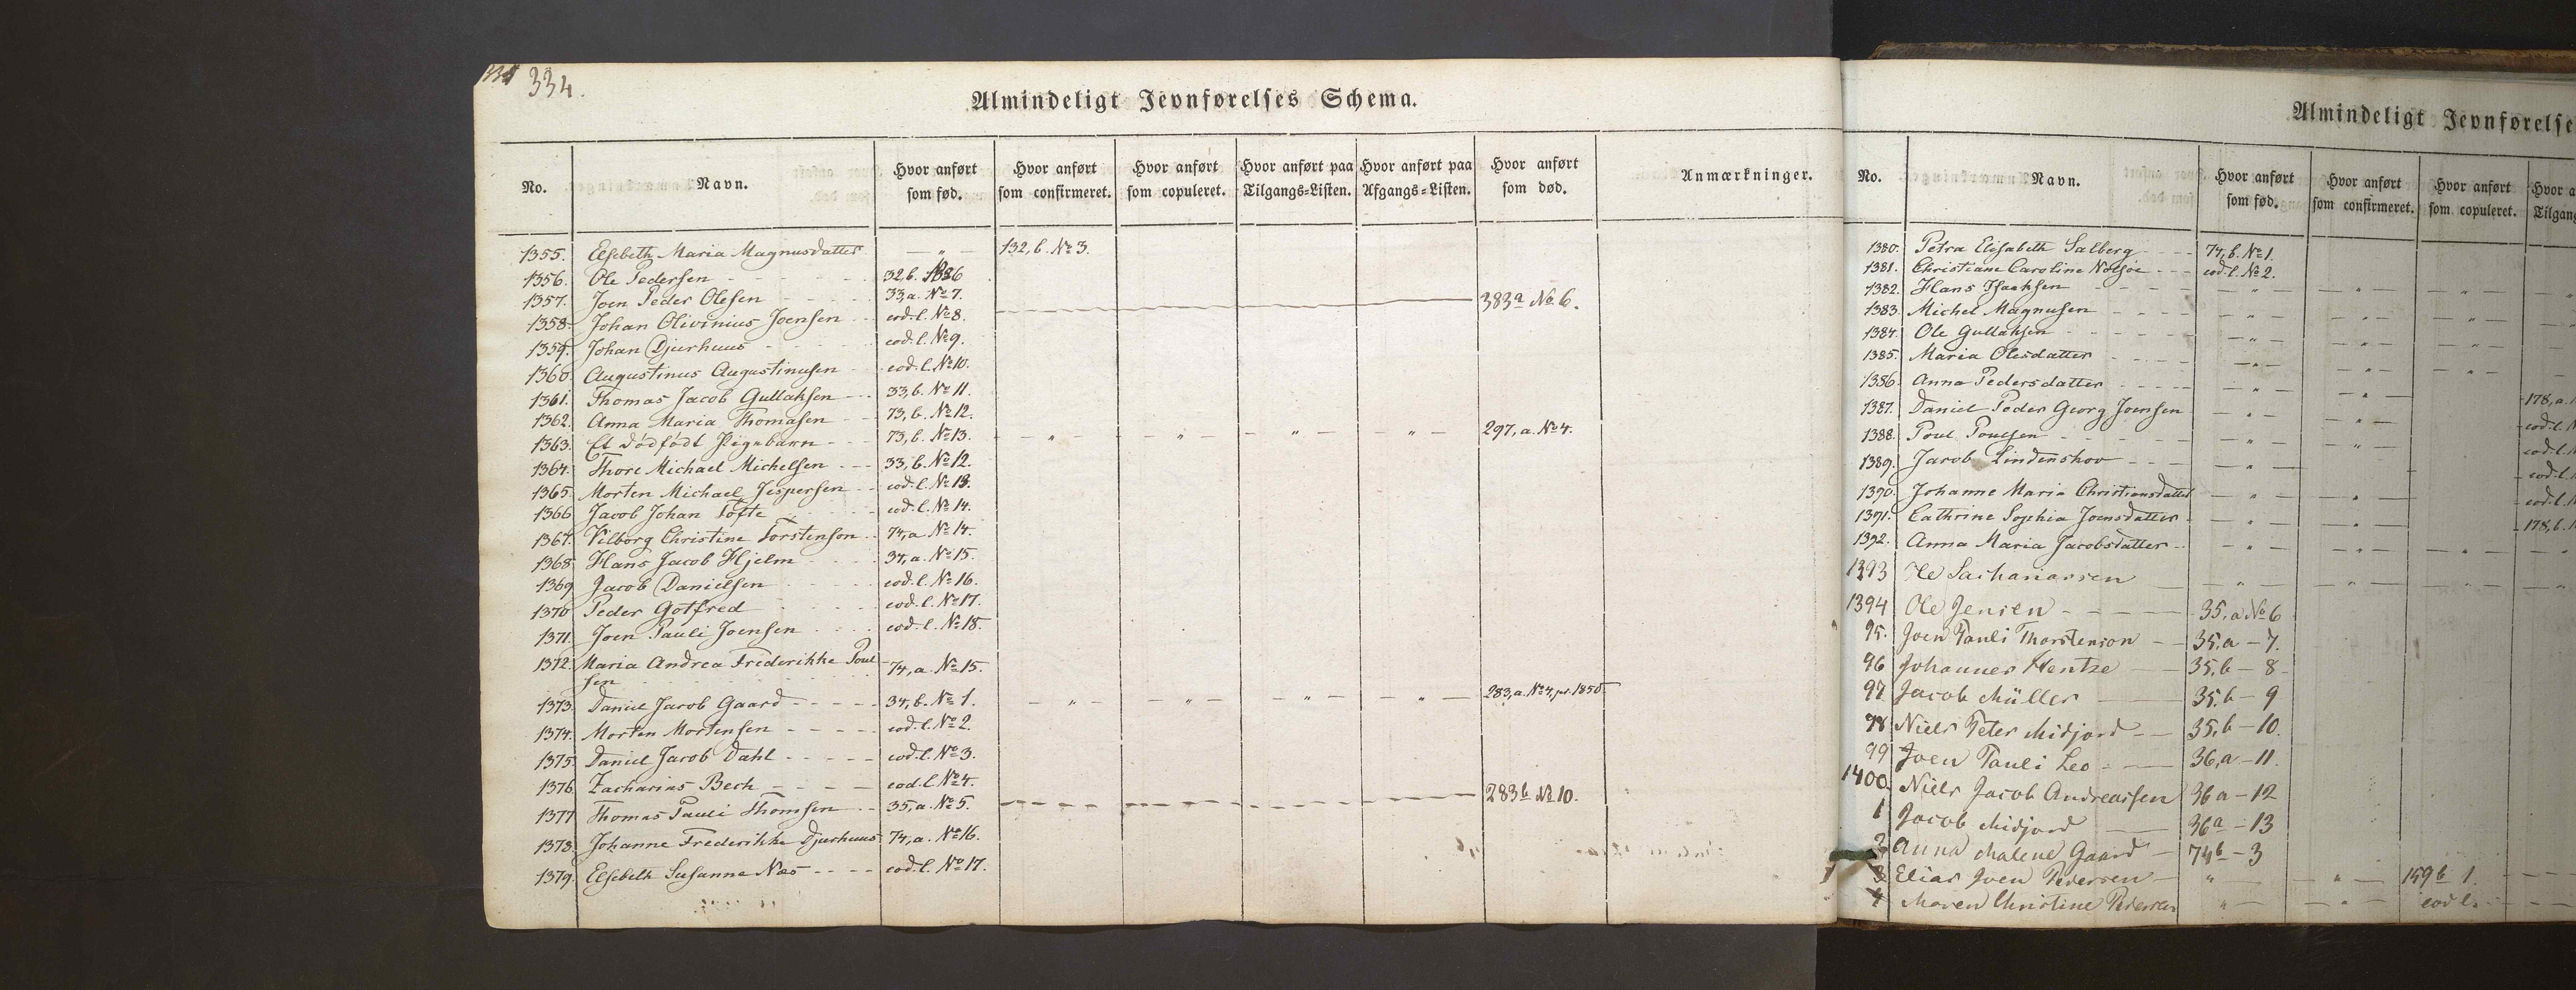 334.
Almindeligt Jevnførelses Schema.
No. Navn. Hvor anført som fød. Hvor anført som confirmeret. Hvor anført som copuleret. Hvor anført paa Tilgangs-Listen. Hvor anført paa Afgangs-Listen. Hvor anført som død. Anmærkninger.
1355. Elsebeth Maria Magnusdatter — " — 132, b. No 3.
1356. Ole Pedersen 32 b. No 6
1357. Joen Peder Olesen 33, a. No 7.
1358. Johan Olivinius Joensen eod. l. No 8. 383a No 6.
1359. Johan Djurhuus eod. l. No 9.
1360 Augustinus Augustinusen eod. l. No 10.
1361. Thomas Jacob Gullaksen 33, b. No 11.
1362. Anna Maria Thomasen 73, b. No 12.
1363. Et dødfødt Pigebarn 73, b. No 13. — " — — " — — " — — " — 297, a. No 4.
1364. Thore Michael Michelsen 33, b. No 12.
1365. Morten Michael Jespersen eod. l. No 13.
1366 Jacob Johan Tofte eod. l. No 14.
1367. Vilborg Christine Torstenson 74, a No 14.
1368 Hans Jacob Hjelm 34, a. No 15.
1369 Jacob Danielsen eod. l. No 16.
1370 Peder Gotfred eod. l. No 17.
1371. Joen Pauli Joensen eod. l. No 18.
1372. Maria Andrea Frederikke Poul-
sen 74, a. No 15.
1373. Daniel Jacob Gaard 34, b. No 1. — " — — " — — " — — " — 283, a. No 4, pr. 1850.
1374. Morten Mortensen eod. l. No 2.
1375. Daniel Jacob Dahl eod. l. No 3.
1376 Zacharias Bech eod. l. No 4.
1377 Thomas Pauli Thomsen 35, a. No 5. 283b No 10.
1378. Johanne Frederikke Djurhuus 74, a. No 16.
1379. Elsebeth Susanne Næs eod. l. No 17.
Almindeligt Jevnførelse
No. Navn. Hvor anført som fød. Hvor anført som confirmeret. Hvor anført som copuleret. Hvor a Tilgang
1380. Petra Elisabeth Salberg 74, b. No 1.
1381. Christiane Caroline Nolsøe eod. l. No 2.
1382. Hans Isaaksen — " — — " — — " —
1383. Michel Magnusen — " — — " — — " —
1384. Ole Gullaksen — " — — " — — " —
1385. Maria Olesdatter — " — — " — — " —
1386. Anna Pedersdatter — " — — " —
1387. Daniel Peder Georg Joensen — " — — " — 178, a.
1388. Poul Poulsen — " — — " — eod. l.
1389. Jacob Lindenskov — " — eod. l.
1390. Johanne Maria Christiansdatter — " — — " — eod. l.
1391. Cathrine Sophia Joensdatter — " — — " — 178, b.
1392. Anna Maria Jacobsdatter — " — — " — — " —
1393 Ole Sachariassen — " — — " — — " —
1394 Ole Jensen 35, a No 6
95. Joen Pauli Thorstenson 35, a — 7.
96 Johannes Hentze 35, b — 8
97 Jacob Müller 35, b — 9
98 Niels Peter Midjord 35, b — 10.
99 Joen Pauli Leo 36, a — 11.
1400. Niels Jacob Andreassen 36 a — 12
1 Jacob Midjord 36a — 13
2 Anna Malene Gaard 74b — 3
3 Elias Joen Pedersen " — — " — 159 b 1.
4 Maren Christine Pedersen " — — " — eod l.